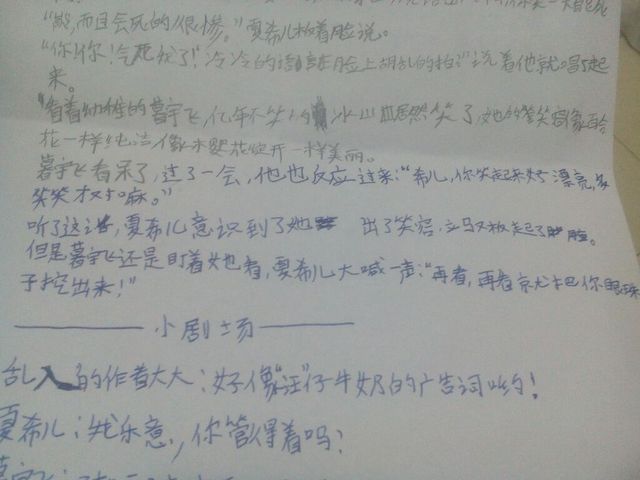 "哦,而且会死的很惨。"夏希儿板着脸说。
"你!你!气死我了!"冷冷的语言在脸上胡乱的拍"说着他就唱了起
来。
看着幼稚的暮宇飞,亿年不笑的冰山居然笑了,她的笑容像百合
花一样纯洁像木犀花绽开一样美丽。
暮宇飞看呆了,过了一会,他也反应过来:"希儿,你笑起来好漂亮,多
笑笑才知麻。"
听了这话,夏希儿意识到了她 出了笑容,立马又板起了脸。
但是暮宇飞还是盯着她看,夏希儿大喊一声:"再看,再看就把你眼珠
子挖出来!"
小剧场
乱入的作者大大:好像"汪"仔牛奶的广告词哟!
夏希儿:我乐意,你管得着吗?
暮宇飞: